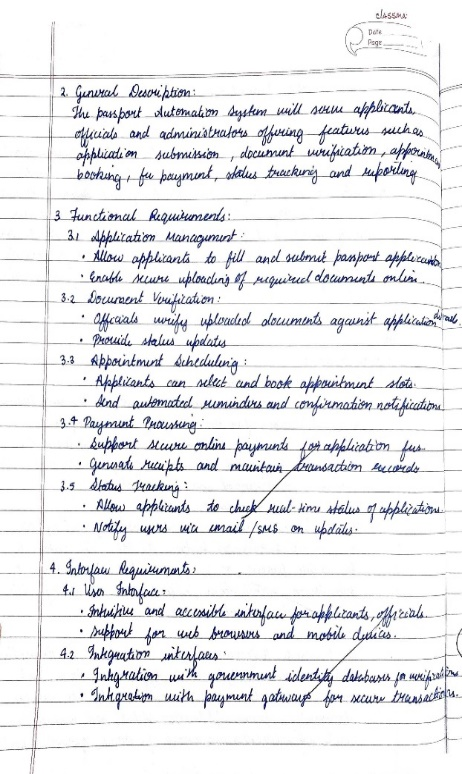 classmate
Date
Page
2. General Description:
The passport Automation system will serve applicants,
officials and administrators offering features such as
application submission, document verification, appointment
booking, fee payment, status tracking and reporting
3. Functional Requirements:
3.1 Application Management:
• Allow applicants to fill and submit passport application
• Enable secure uploading of required documents online.
3.2 Document Verification:
• Officials verify uploaded documents against application details.
• Provide status updates
3.3 Appointment Scheduling:
• Applicants can select and book appointment slots.
• Send automated reminders and confirmation notifications
3.4 Payment Processing:
• Support secure online payments for application fees.
• Generate receipts and maintain transaction records
3.5 Status Tracking:
• Allow applicants to check real-time status of applications.
• Notify users via email/SMS on updates.
4. Interface Requirements:
4.1 User Interface:
• Intuitive and accessible interface for applicants, officials.
• Support for web browsers and mobile devices.
4.2 Integration interfaces:
• Integration with government identity databases for verifications
• Integration with payment gateways for secure transactions.